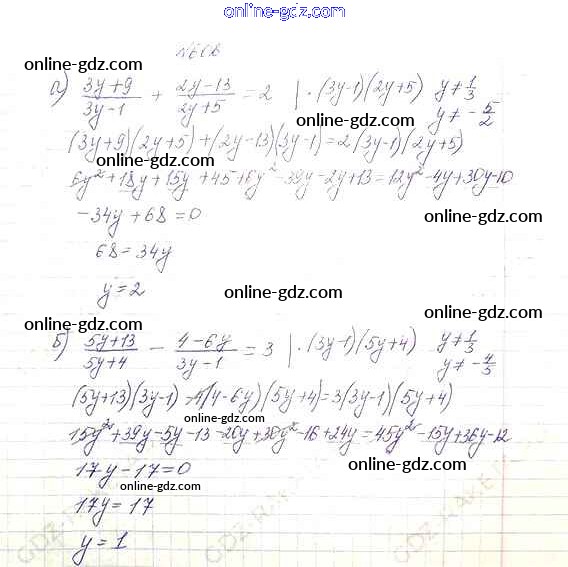 online-gdz.com
№602
online-gdz.com
а) (3y+9)/(3y-1) + (2y-13)/(2y+5) = 2 | ·(3y-1)(2y+5) y≠1/3
online-gdz.com y≠-5/2
(3y+9)(2y+5)+(2y-13)(3y-1)=2(3y-1)(2y+5)
online-gdz.com online-gdz.com
6y²+18y+15y+45+6y²-39y-2y+13=12y²-4y+30y-10
-34y+68=0 online-gdz.com
68=34y
y=2 online-gdz.com
online-gdz.com online-gdz.com
б) (5y+13)/(5y+4) - (4-6y)/(3y-1) = 3 | ·(3y-1)(5y+4) y≠1/3
online-gdz.com y≠-4/5
(5y+13)(3y-1)-(4-6y)(5y+4)=3(3y-1)(5y+4)
online-gdz.com
15y²+39y-5y-13-20y+30y²-16+24y=45y²-15y+36y-12
17y-17=0 online-gdz.com
online-gdz.com
17y=17
y=1
online-gdz.com